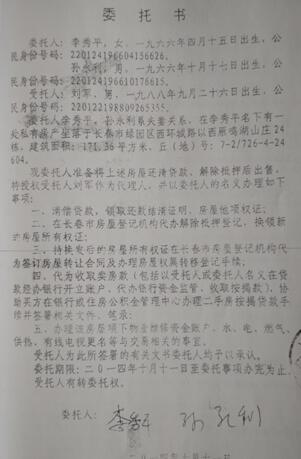 委 托 书
委托人：李秀平，女，一九六六年四月十五日出生，公
民身份号码：220124196604156626。
孙永利，男，一九六六年十月十七日出生，公
民身份号码：220124196610176615。
受托人：刘军，男，一九八八年九月二十六日出生，公
民身份号码：220122198809265355。
委托人李秀平、孙永利系夫妻关系，在李秀平名下有一
处私有房产坐落于长春市绿园区西环城路以西雁鸣湖山庄24
栋，建筑面积：171.36平方米，丘（地）号：7-2/726-4-24
604。
现委托人准备将上述房屋还清贷款、解除抵押后出售，
特授权受托人刘军作为代理人，并以委托人的名义办理如下
事项：
一、清偿贷款，领取还款结清证明、房屋他项权证；
二、在长春市房屋登记机构代办解除抵押登记，换领新
的房屋所有权证；
三、待换发后的房屋所有权证在长春市房屋登记机构代
为签订房屋转让合同及办理房屋权属转移登记手续；
四、代为收取卖房款（包括以受托人或委托人名义在贷
款经办银行开立账户、代办银行资金监管、收取按揭款），协
助买方在银行或住房公积金管理中心办理二手房按揭贷款手
续并签署相关文件、笔录；
五、办理该房屋项下物业维修资金账户、水、电、燃气、
供热、有线电视更名等与交易相关的事宜。
受托人为此所签署的有关文书委托人均予以承认。
委托期限：二0一四年十月十一日至委托事项办完为止。
受托人有转委托权。
委托人： 李秀平 孙永利
二0一四年十月十一日